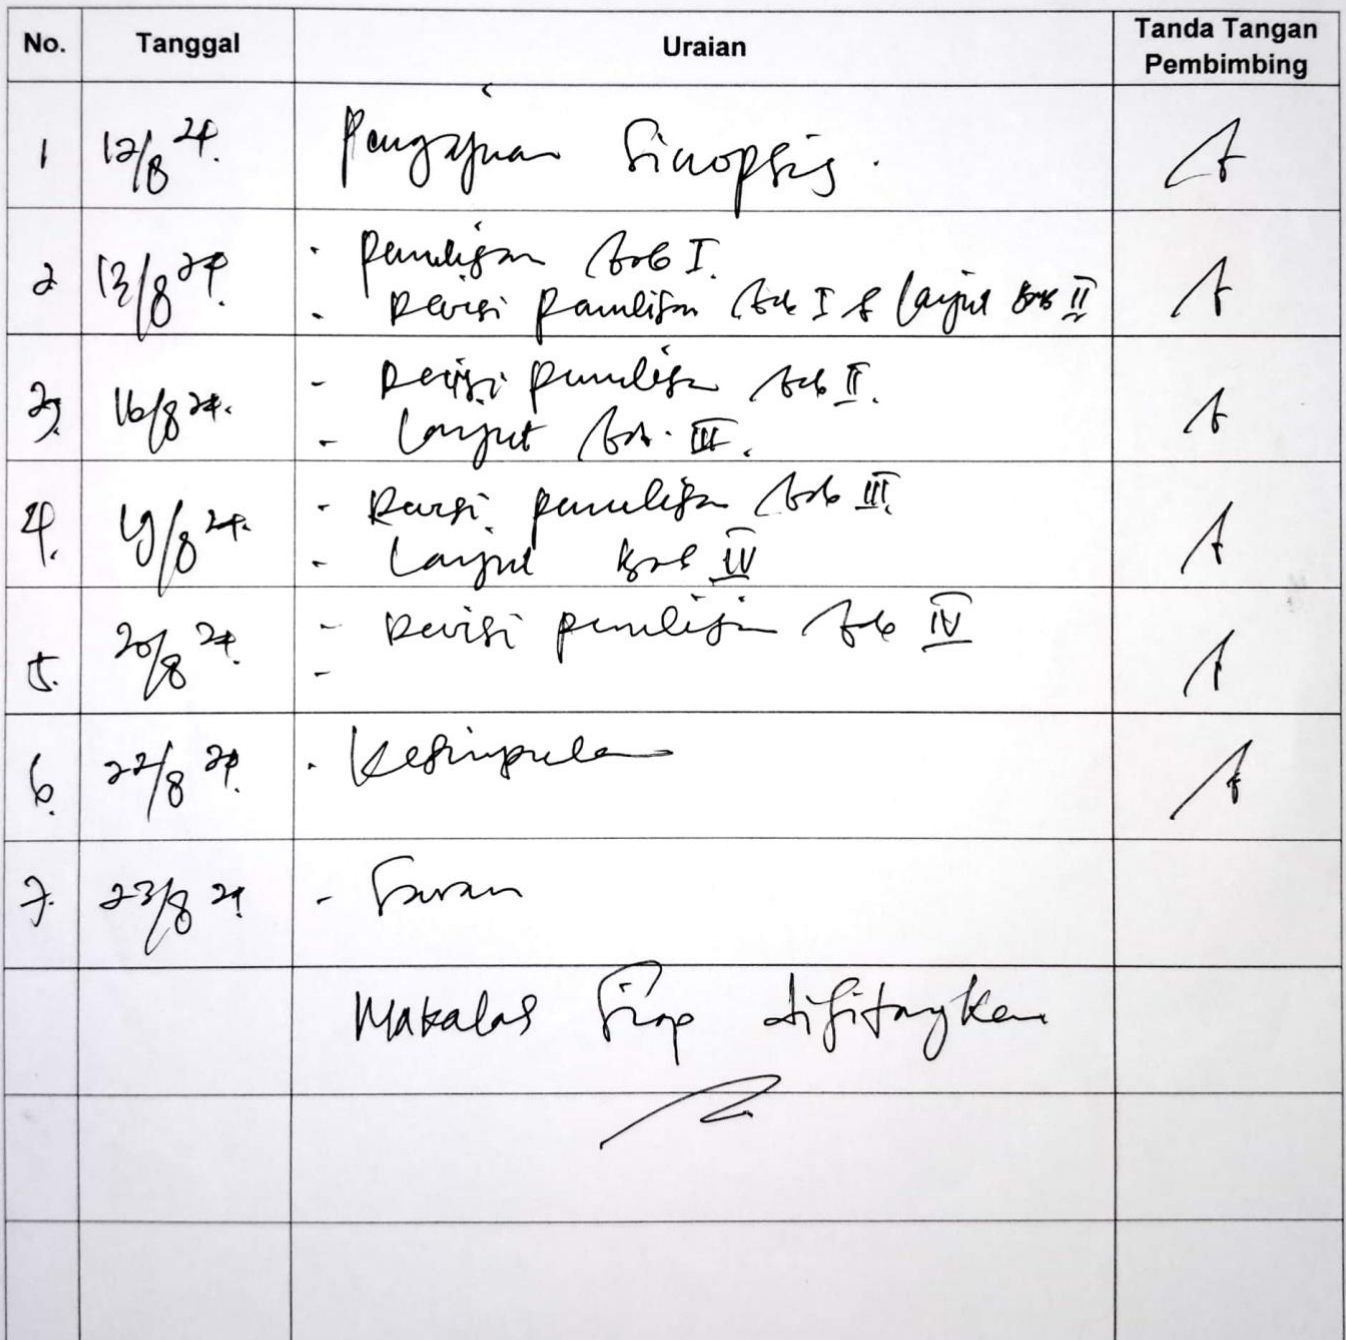 No. Tanggal Uraian Tanda Tangan Pembimbing
1 12/8 24. Pengajuan Sinopsis.
2 13/8 24. - Penulisan Bab I.
- Revisi Penulisan Bab I & Lanjut Bab II
3. 16/8 24. - Revisi Penulisan Bab II.
- Lanjut Bab. III.
4. 19/8 24. - Revisi penulisan Bab III.
- Lanjut Bab IV
5. 20/8 24. - Revisi penulisan Bab IV
-
6. 22/8 24. - Kesimpulan
7. 23/8 24. - Saran
Makalah Siap disidangkan